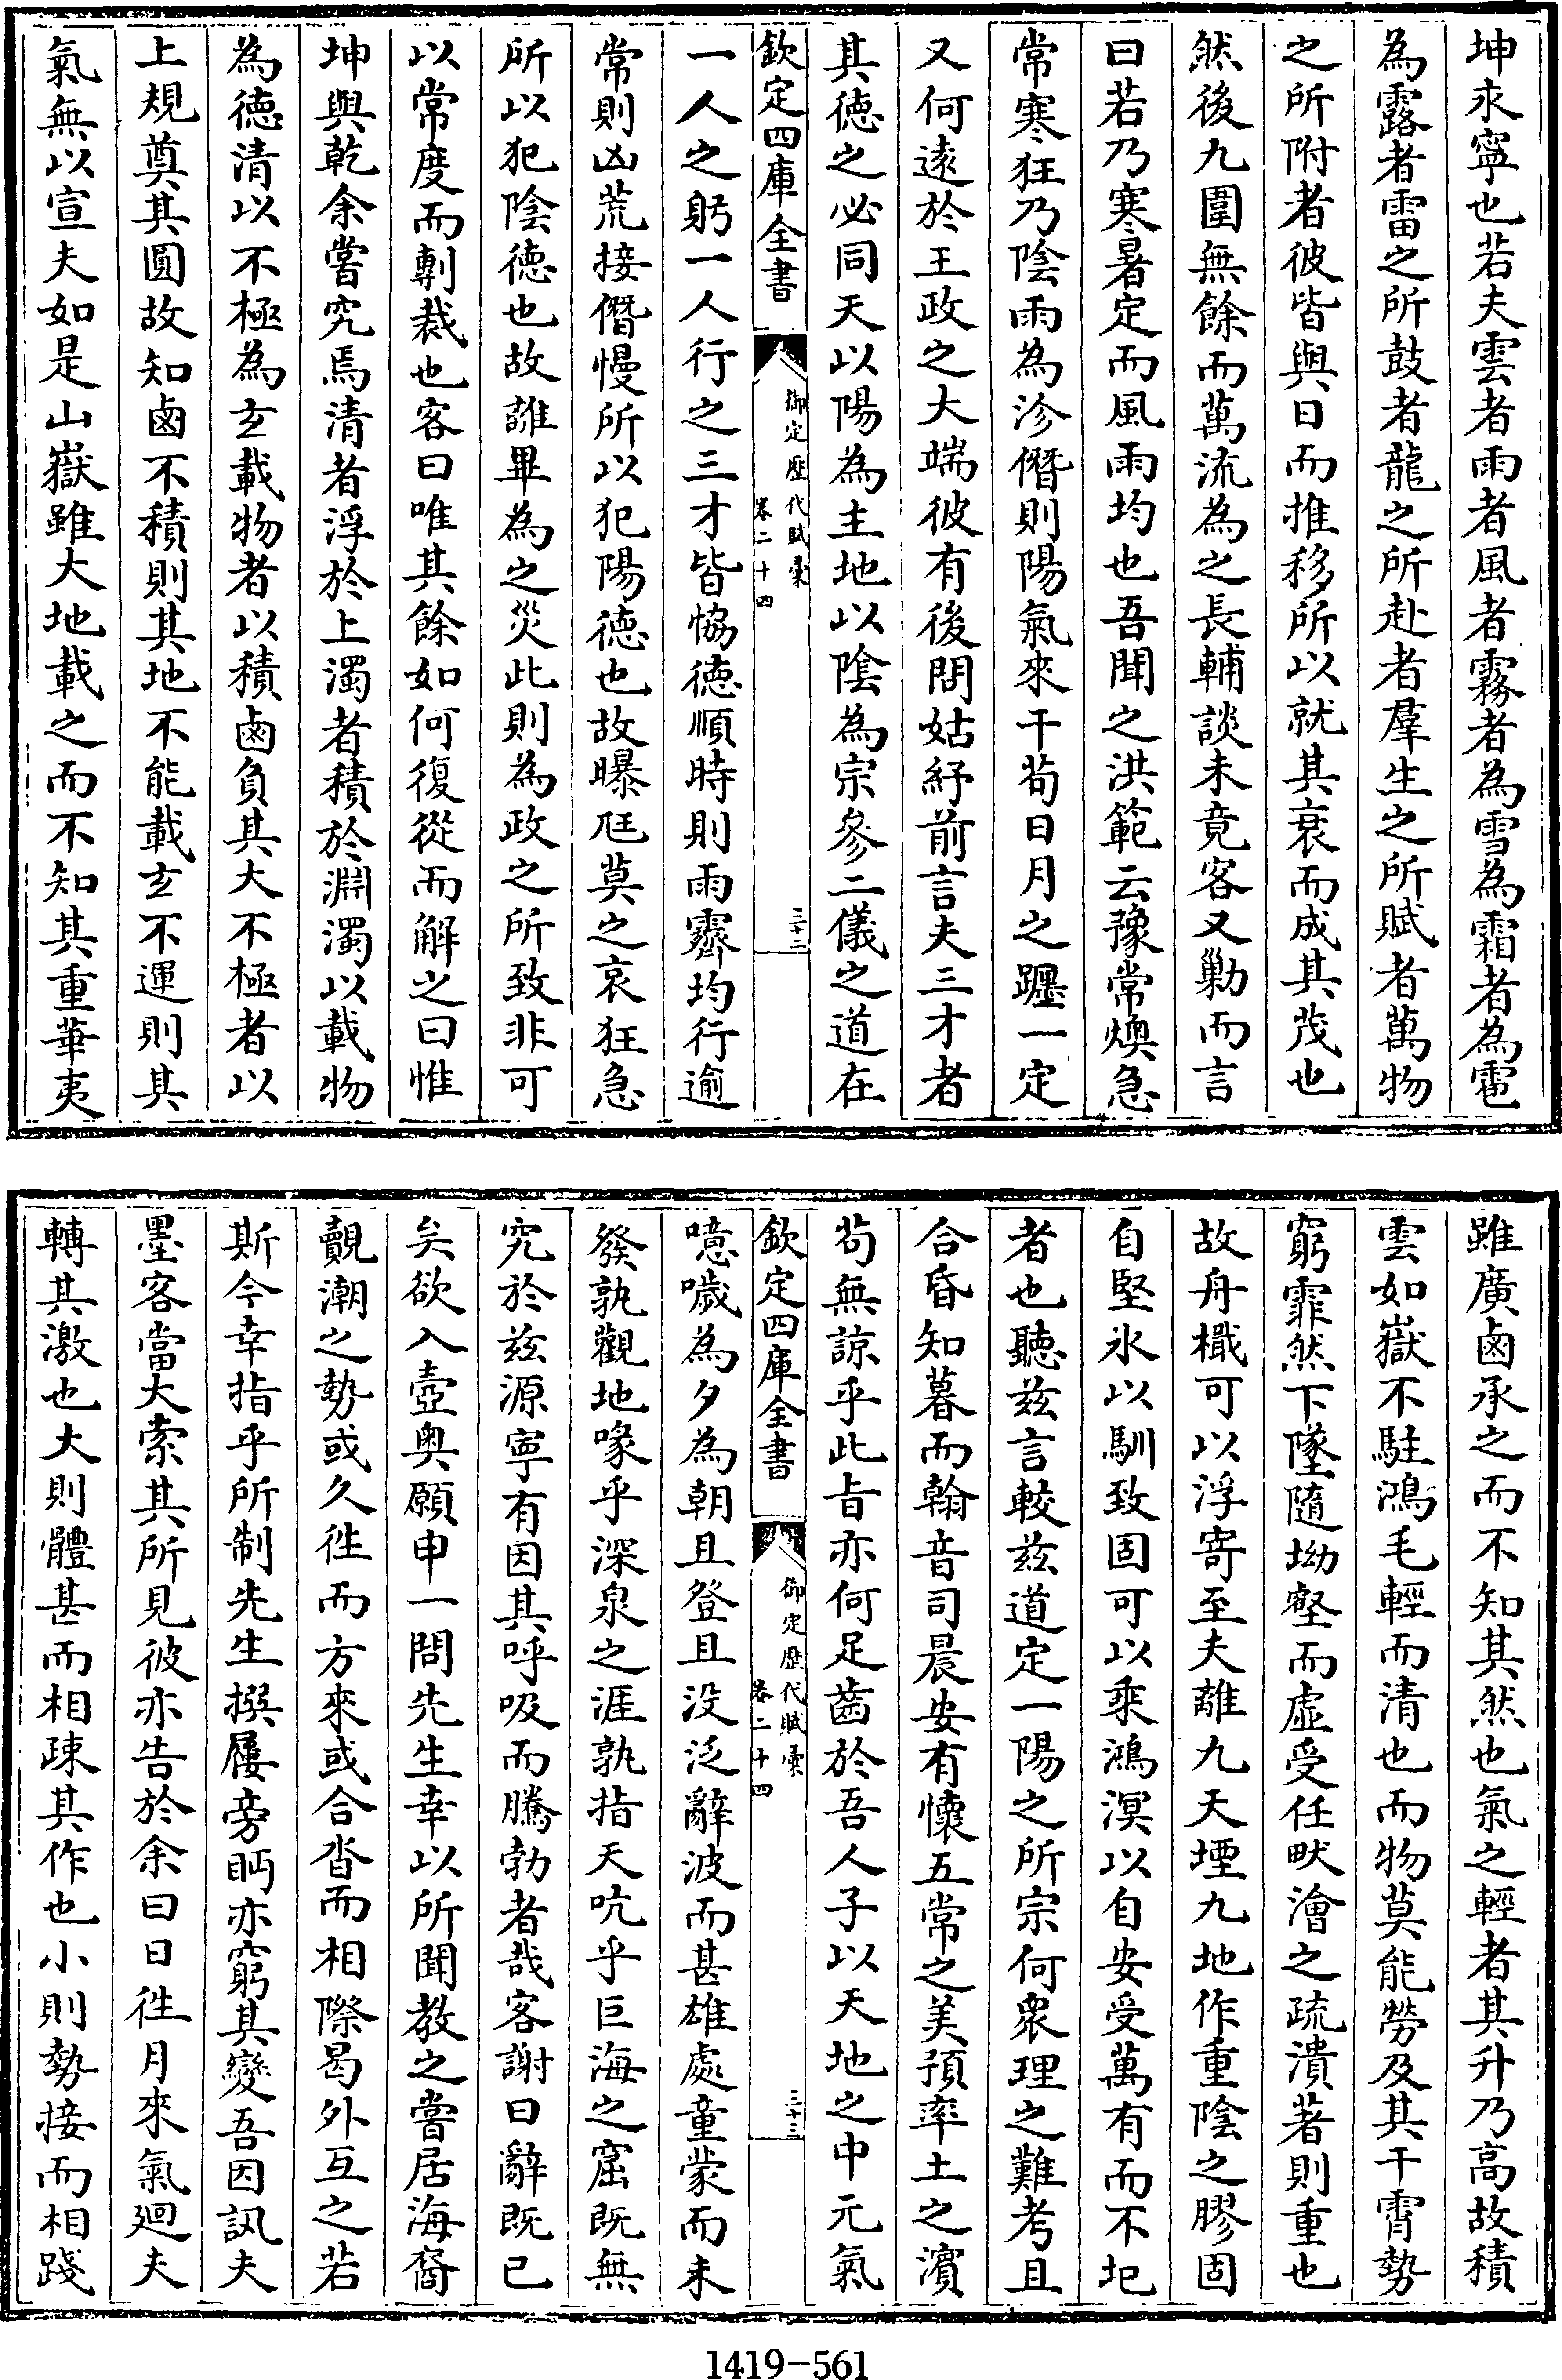 坤永寧也若夫雲者雨者風者霧者為雪為霜者為雹
為露者雷之所鼓者龍之所赴者羣生之所賦者萬物
之所附者彼皆與日而推移所以就其衰而成其茂也
然後九圍無餘而萬流為之長輔談未竟客又勦而言
曰若乃寒暑定而風雨均也吾聞之洪範云豫常燠急
常寒狂乃陰雨為沴僭則陽氣來干茍日月之躔一定
又何遠於王政之大端彼有後問姑紓前言夫三才者
其徳之必同天以陽為主地以陰為宗參二儀之道在
欽定四庫全書
御定歴代賦彚
卷二十四
三十二
一人之躬一人行之三才皆恊徳順時則雨霽均行逾
常則凶荒接僭慢所以犯陽徳也故曝尫莫之哀狂急
所以犯陰徳也故離畢為之災此則為政之所致非可
以常度而剸裁也客曰唯其餘如何復從而解之曰惟
坤與乾余嘗究焉清者浮於上濁者積於淵濁以載物
為徳清以不極為玄載物者以積鹵負其大不極者以
上規奠其圓故知鹵不積則其地不能載玄不運則其
氣無以宣夫如是山嶽雖大地載之而不知其重華夷
雖廣鹵承之而不知其然也氣之輕者其升乃高故積
雲如嶽不駐鴻毛輕而清也而物莫能勞及其干霄勢
窮霏然下墜隨坳壑而虛受任畎澮之疏潰著則重也
故舟檝可以浮寄至夫離九天堙九地作重陰之膠固
自堅氷以馴致固可以乘鴻溟以自安受萬有而不圯
者也聽兹言較兹道定一陽之所宗何衆理之難考且
合昏知暮而翰音司晨安有懷五常之美預率土之濱
茍無諒乎此㫖亦何足齒於吾人子以天地之中元氣
欽定四庫全書
御定歴代賦彚
卷二十四
三十三
噫噦為夕為朝且登且没泛辭波而甚雄處童蒙而未
發孰觀地喙乎深泉之涯孰指天吭乎巨海之窟既無
究於兹源寧有因其呼吸而騰勃者哉客謝曰辭既已
矣欲入壺奥願申一問先生幸以所聞教之嘗居海裔
覿潮之勢或久徃而方來或合沓而相際曷外互之若
斯今幸指乎所制先生撰屨旁眄亦窮其變吾因訊夫
墨客當大索其所見彼亦告於余曰日徃月來氣廻夫
轉其激也大則體甚而相疎其作也小則勢接而相踐
1419-561